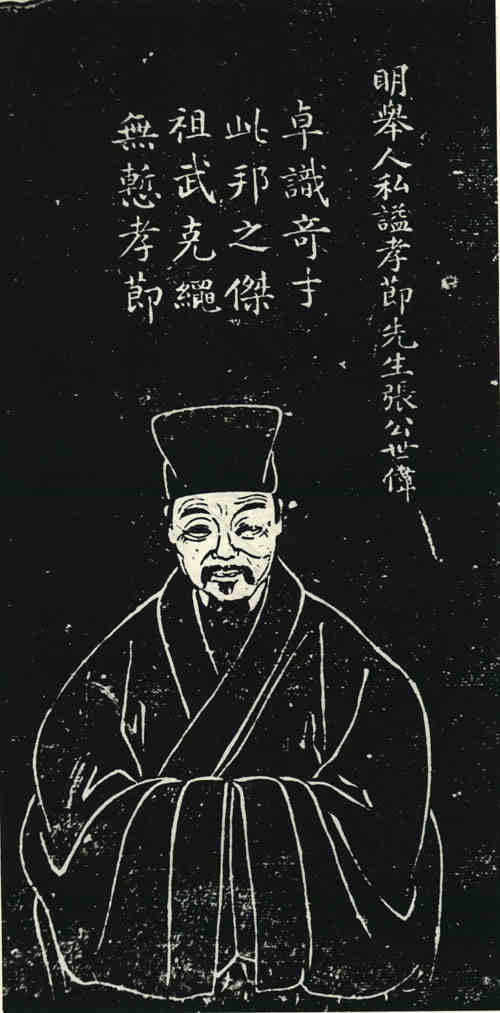 明舉人私諡孝節先生張公世偉
卓識奇才
此邦之傑
祖武克繩
無慙孝節